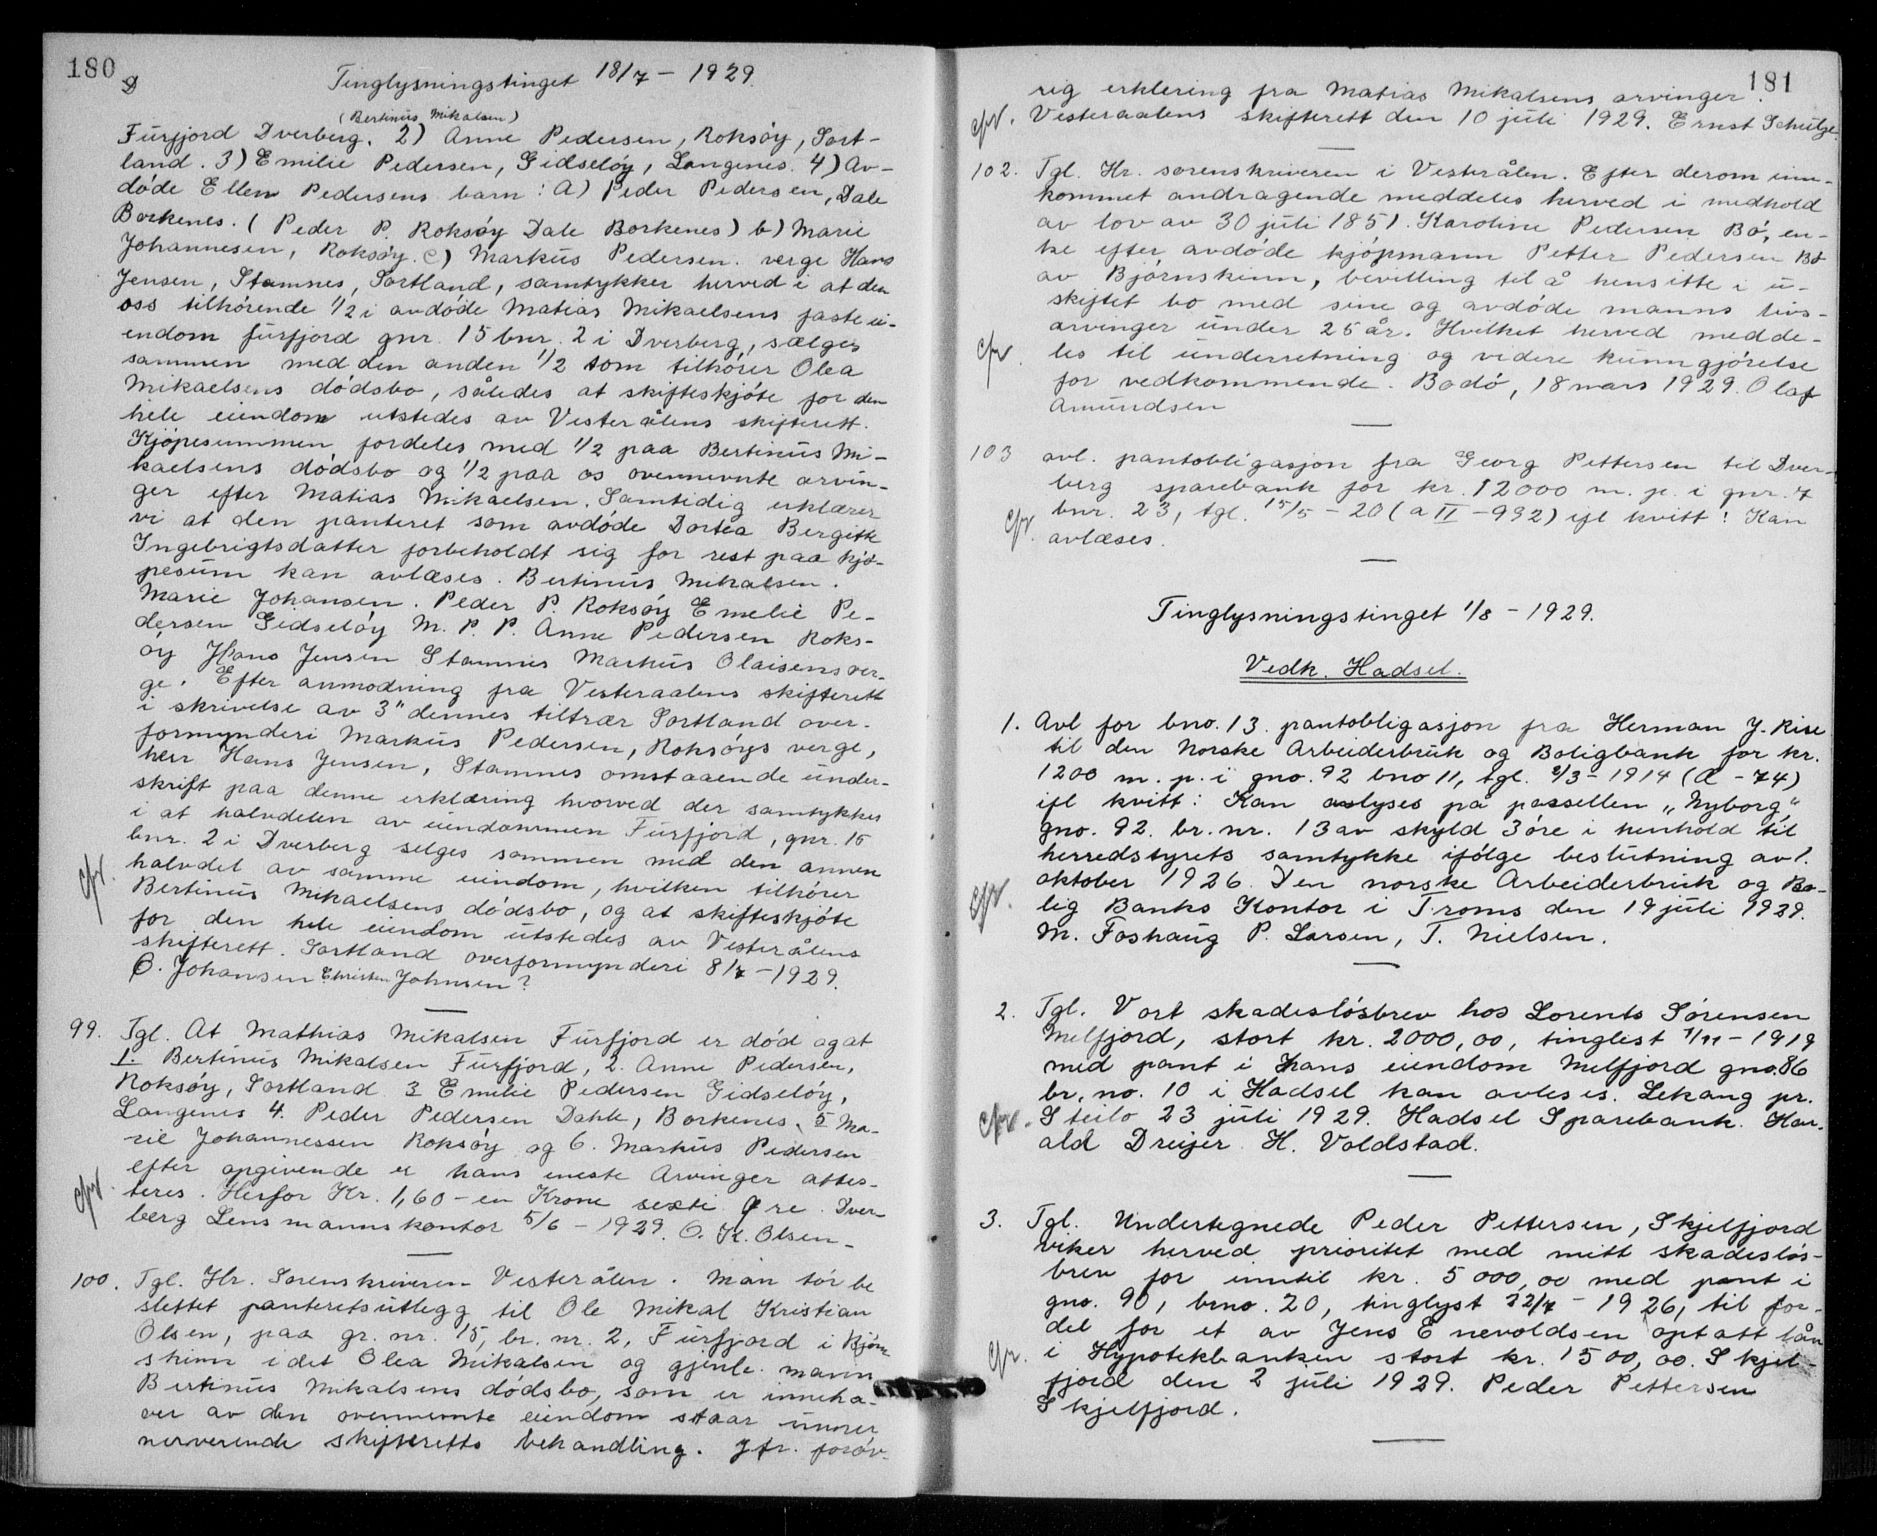 180
Tinglysningstinget 18/7 - 1929.
(Bertinus Mikalsen)
Furfjord Dverberg. 2) Anne Pedersen, Roksøy, Sort-
land. 3) Emilie Pedersen, Gidseløy, Langenes. 4) Av-
døde Ellen Pedersens barn: a) Peder Pedersen, Dale
Borkenes. (Peder P. Roksøy Dale Borkenes) b) Marie
Johannesen, Roksøy. c) Markus Pedersen. verge Hans
Jensen, Stamnes, Sortland, samtykker herved i at den
oss tilhørende 1/2 i avdøde Matias Mikaelsens faste ei-
endom furfjord gnr. 15 bnr. 2 i Dverberg, sælges
sammen med den anden 1/2 som tilhører Olea
Mikaelsens dødsbo, således at skifteskjøte for den
hele eiendom utstedes av Vesterålens skifterett.
Kjøpesummen fordeles med 1/2 paa Bertinus Mi-
kaelsens dødsbo og 1/2 paa os ovennevnte arvin-
ger efter Matias Mikaelsen. Samtidig erklærer
vi at den panteret som avdøde Dortea Bergitte
Ingebrigtsdatter forbeholdt sig for rest paa kjø-
pesum kan avlæses. Bertinus Mikalsen.
Marie Johansen. Peder P. Roksøy Emelie Pe-
dersen Gidseløy M. P. P. Anne Pedersen Roks-
øy Hans Jensen Stamnes Markus Olaisens ver-
ge. Efter anmodning fra Vesteraalens skifterett
i skrivelse av 3" dennes tiltrær Sortland over-
formynderi Markus Pedersen, Roksøys verge,
herr Hans Jensen, Stamnes omstaaende under-
skrift paa denne erklæring hvorved der samtykkes
i at halvdelen av eiendommen Furfjord, gnr. 15
bnr. 2 i Dverberg selges sammen med den annen
halvdel av samme eiendom, hvilken tilhører
Bertinus Mikaelsens dødsbo, og at skifteskjøte
for den hele eiendom utstedes av Vesterålens
skifterett. Sortland overformynderi 8/7 - 1929.
O. Johansen Christen Johnsen?
99. Tgl. At Mathias Mikalsen Furfjord er død og at
1. Bertinus Mikalsen Furfjord, 2. Anne Pedersen,
Roksøy, Sortland 3 Emelie Pedersen Gidseløy,
Langenes 4. Peder Pedersen Dahle, Borkenes, 5 Ma-
rie Johannessen Roksøy og 6. Markus Pedersen
efter opgivende er hans eneste Arvinger attes-
teres. Herfor Kr. 1,60 - en Krone sexti Øre. Dver-
berg Lensmannskontor 5/6 - 1929. O. K. Olsen -
100. Tgl. Hr. Sorenskriveren Vesterålen. Man tør be
slettet panteretsutlegg til Ole Mikal Kristian
Olsen, paa gr. nr. 15, br. nr. 2, Furfjord i Bjørn
skinn idet Olea Mikalsen og gjenle. mann
Bertinus Mikalsens dødsbo, som er inneha-
ver av den ovennevnte eiendom staar unner
nerverende skifteretts behandling. Jfr. forøv-
181
rig erklering fra Matias Mikalsens arvinger.
Vesteraalens skifterett den 10 juli 1929. Ernst Schulze.
102. Tgl. Hr. sorenskriveren i Vesterålen. Efter derom inn-
kommet andragende meddeles herved i medhold
av lov av 30 juli 1851. Karoline Pedersen Bø, en-
ke efter avdøde kjøpmann Petter Pedersen Bø
av Bjørnskinn, bevilling til å hensitte i u-
skiftet bo med sine og avdøde manns livs-
arvinger under 25 år. Hvilket herved medde-
les til underretning og videre kunngjørelse
for vedkommende. Bodø, 18 mars 1929. Olaf
Amundsen
103 avl. pantobligasjon fra Georg Pettersen til Dver-
berg sparebank for kr. 12000 m. p. i gnr. 7
bnr. 23, tgl. 15/5 - 20 (a II - 992) ifl kvitt: Kan
avlæses.
Tinglysningstinget 1/8 - 1929.
Vedk. Hadsel.
1. Avl for bno. 13. pantobligasjon fra Herman J. Rise
til den Norske Arbeiderbruk og Boligbank for kr.
1200 m. p. i gno. 92 bno 11, tgl. 9/3 - 1914 (Æ - 74)
ifl kvitt: Kan avlyses på parsellen "Nyborg"
gno. 92. br. nr. 13 av skyld 3 øre i henhold til
herredstyrets samtykke ifølge beslutning av 1.
oktober 1926. Den norske Arbeiderbruk og Bo-
lig Banks Kontor i Troms den 19 juli 1929.
M. Foshaug P. Larsen, T. Nielsen.
2. Tgl. Vort skadesløsbrev hos Lorents Sørensen
Melfjord, stort kr. 2000,00, tinglest 1/11 - 1919
med pant i hans eiendom Melfjord gno. 86
br. no. 10 i Hadsel kan avleses. Lekang pr.
Steilo 23 juli 1929. Hadsel Sparebank. Har-
ald Dreyer H. Voldstad.
3. Tgl. Undertegnede Peder Pettersen, Skjelfjord
viker herved prioritet med mitt skadesløs-
brev for inntil kr. 5000,00 med pant i
gno. 90, bno. 20, tinglyst 22/7 - 1926, til for-
del for et av Jens Enevoldsen optatt lån
i Hypotekbanken stort kr. 1500,00. Skjel-
fjord den 2 juli 1929. Peder Pettersen
Skjelfjord.